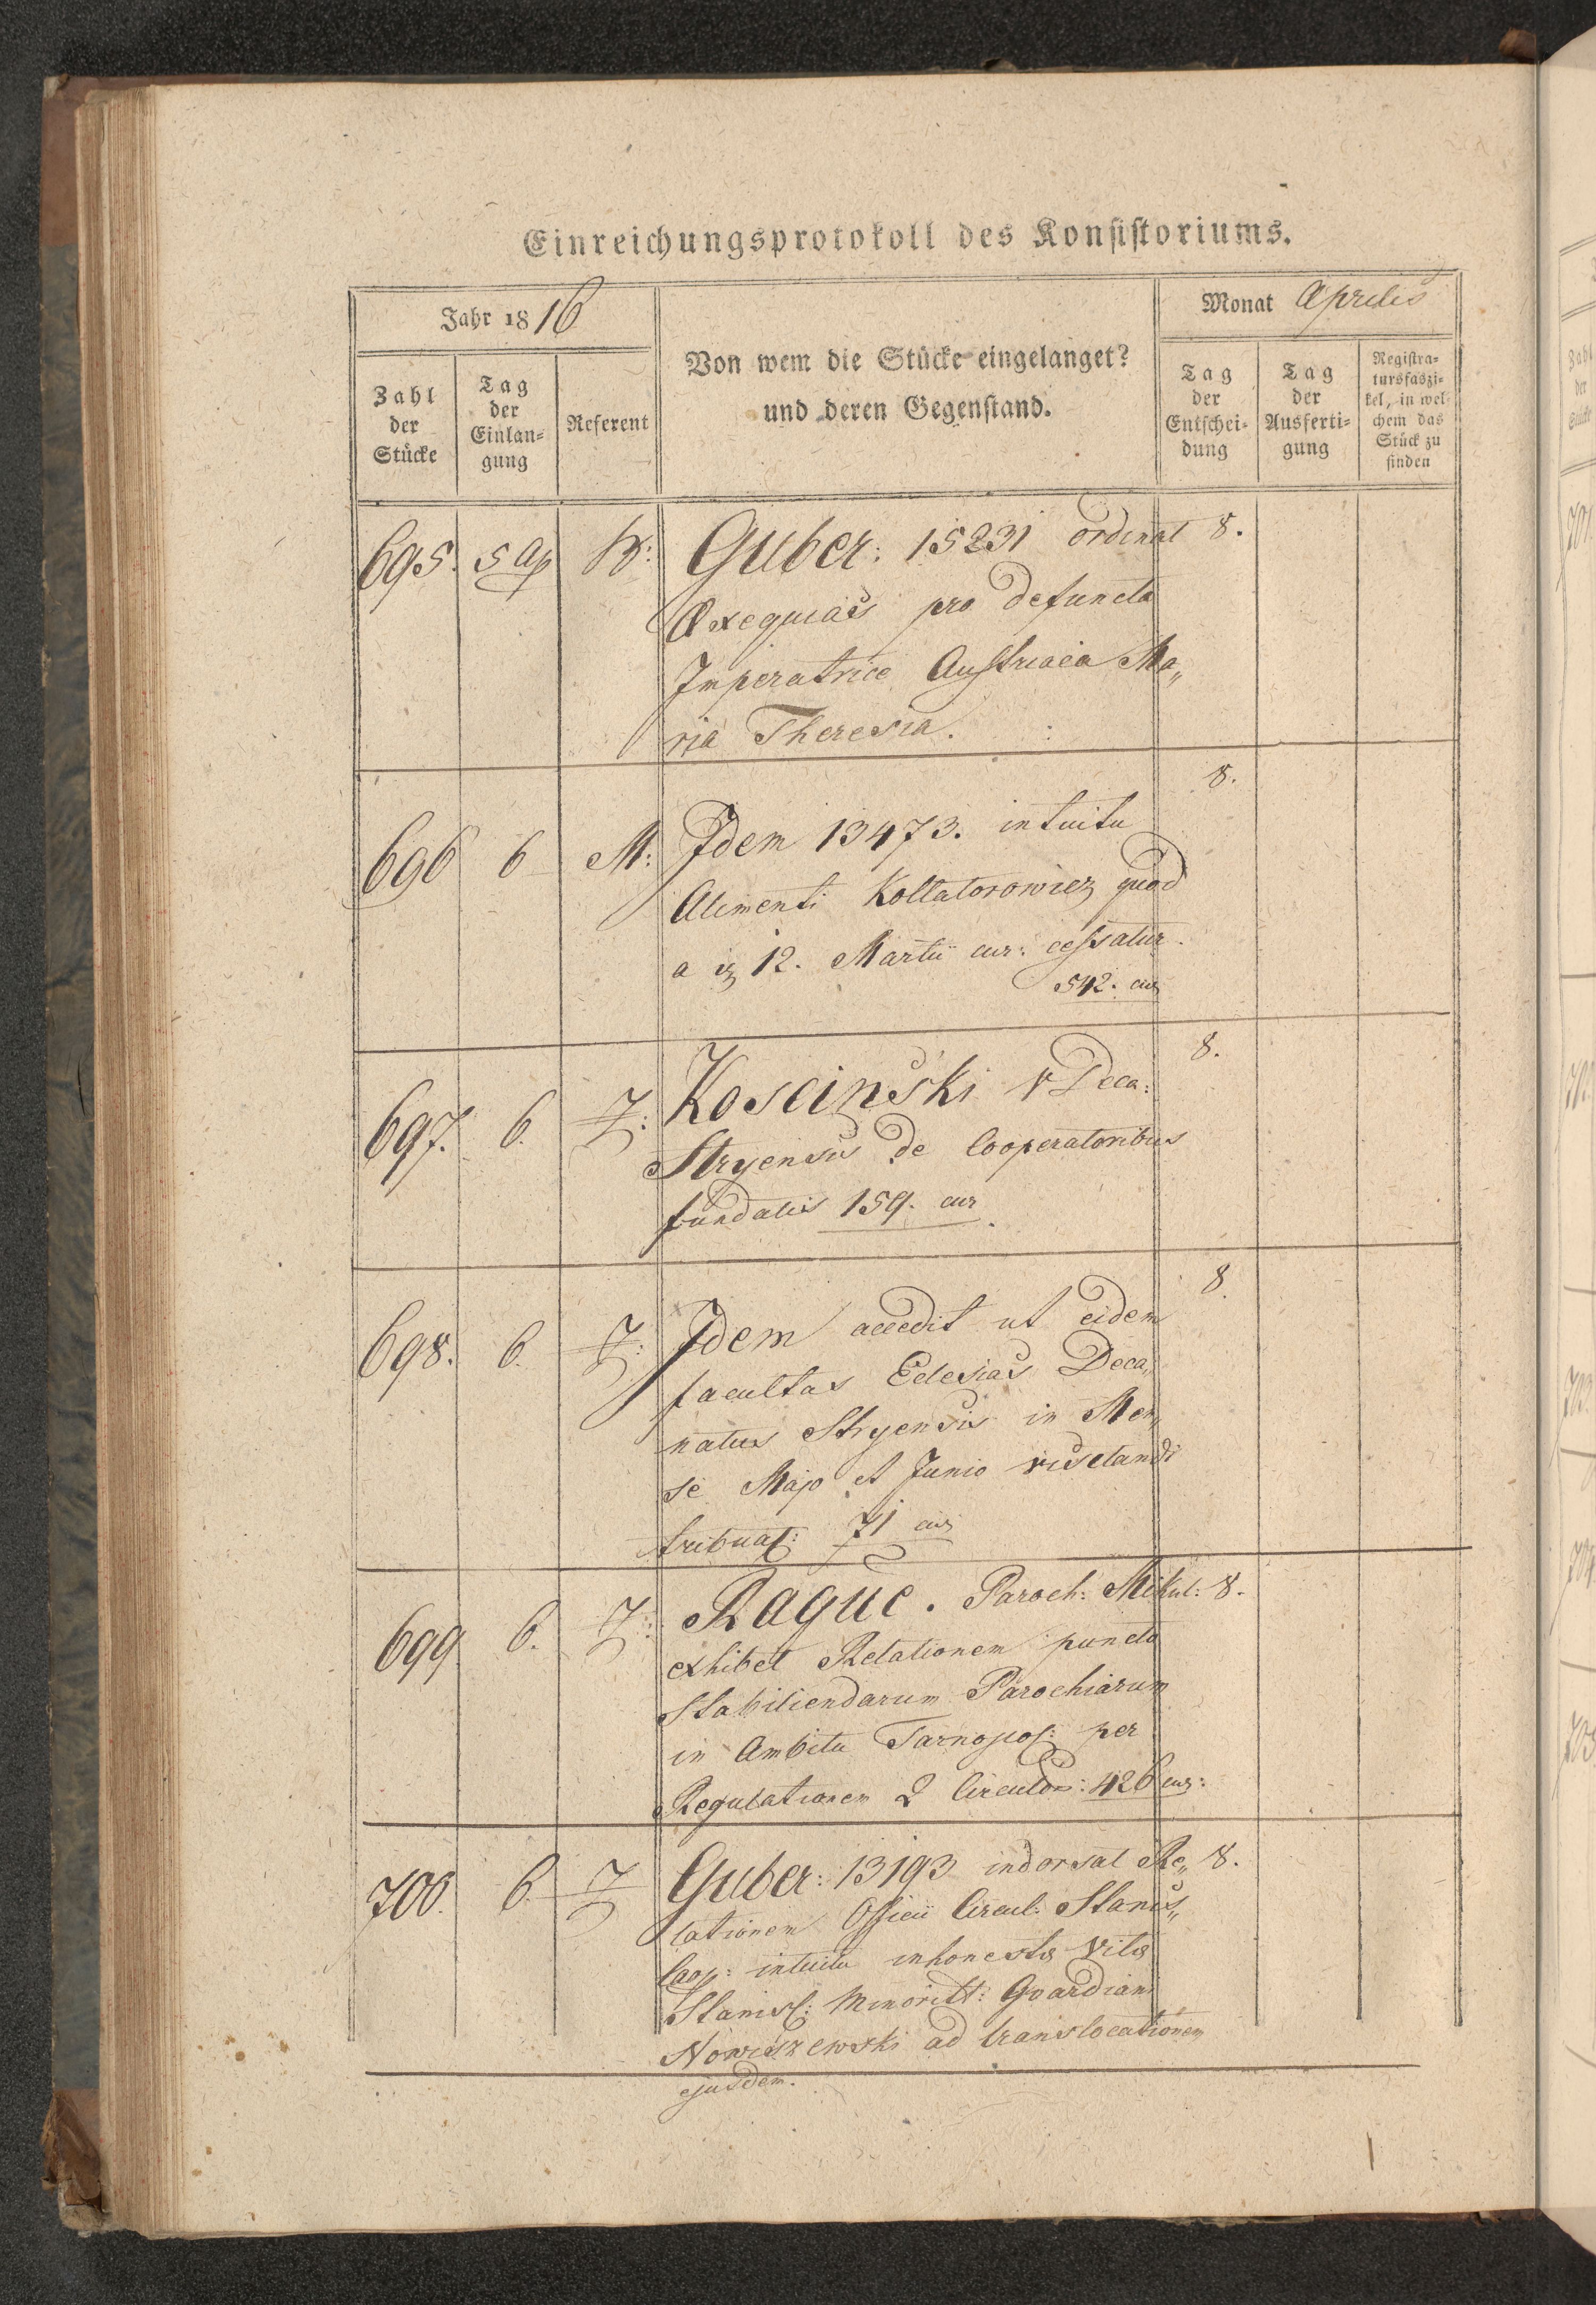 Einreichungsprotokoll des Konsistoriums.
Jahr 1816
Monat Aprilis
Zahl der Stücke
Tag der Einlan-gung
Referent
Von wem die Stücke eingelanget?
und deren Gegenstand.
Tag der Entschei-dung
Tag der Ausferti-gung
Registra-tursfaszi-kel, in wel-chem das Stück zu finden
695. 5 Ap Guber: 15231 ordinat 8.
Exequias pro defuncta
Imperatrice Austriaca Ma„
ria Theresia.
8.
696 6 M: Idem 13473. intuitu
Alimenti Kollatorowicz quod
a 12. Martii cur: cessatur.
542. cur
8.
697. 6. Z: Koscinski V Deca:
Stryensis de Cooperatoribus
fundatis 159. cur
8.
698. 6. Z: Idem accedit ut eidem
facultas Eclesias Deca„
natus Stryensis in Men„
se Majo et Junio visitandi
tribuat: 71 cur
699 6. Z: Rague. Paroch: Mikul: 8.
exhibet Relationem puncto
stabiliendarum Parochiarum
in Ambitu Tarnopol: per
Regulationem 2 Circulor: 426 cur:
700. 6. Z Guber: 13193 indorsat Re„ 8.
lationem Officii Circul: Stanis„
Coop: intuitu inhonestæ Vitæ
Stanisl: Minoritt: Gvardiani
Nowiszewski ad translocationem
ejusdem.